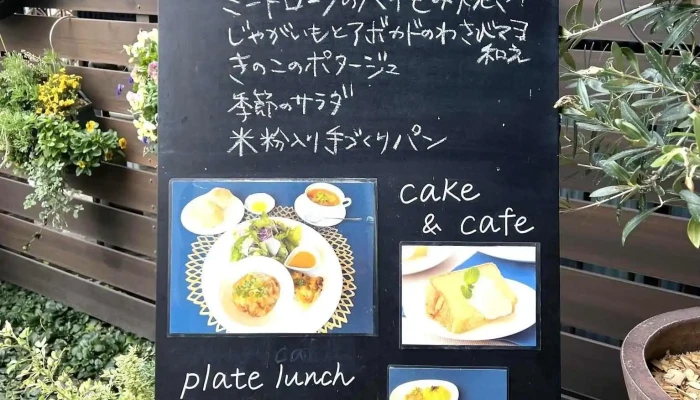 じゃがいもとアボカドのわさびマヨ
和え
きのこのポタージュ
季節のサラダ
米粉入り手づくりパン
cake
& cafe
plate lunch